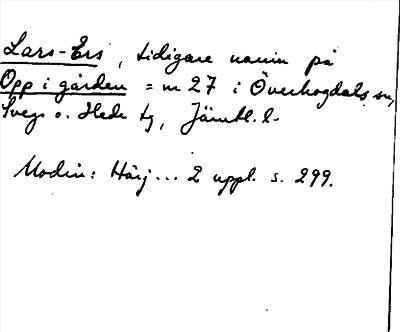 Lars-Ers, tidigare namn på
Opp i gården = nr 27 i Överhogdals sn,
Svegs o. Hede tg, Jämtl. l.
Modin: Härj... 2 uppl. s. 299.